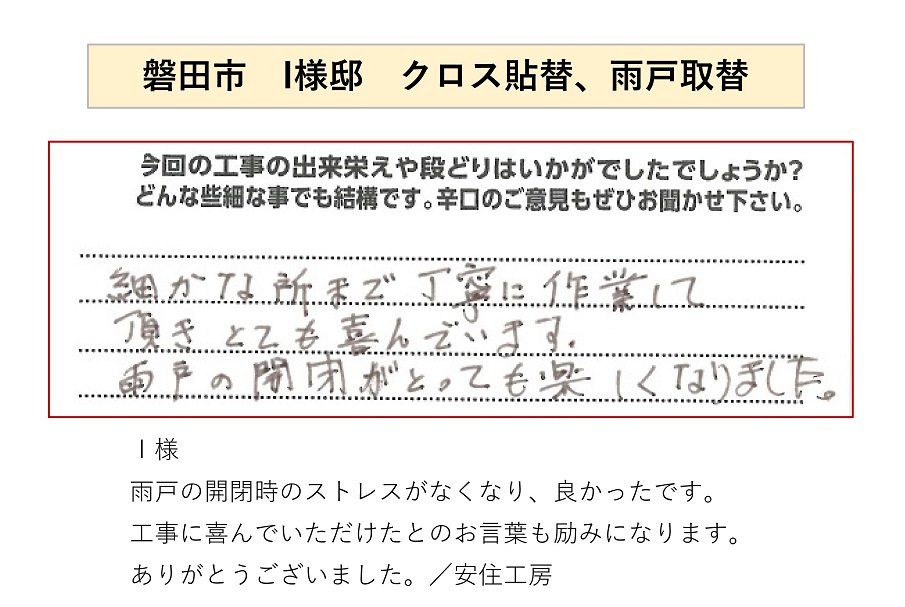 磐田市　I様邸　クロス貼替、雨戸取替
今回の工事の出来栄えや段どりはいかがでしたでしょうか?
どんな些細な事でも結構です。辛口のご意見もぜひお聞かせ下さい。
細かな所まで丁寧に作業して
頂きとても喜んでいます。
雨戸の開閉がとっても楽しくなりました。
I 様
雨戸の開閉時のストレスがなくなり、良かったです。
工事に喜んでいただけたとのお言葉も励みになります。
ありがとうございました。／安住工房